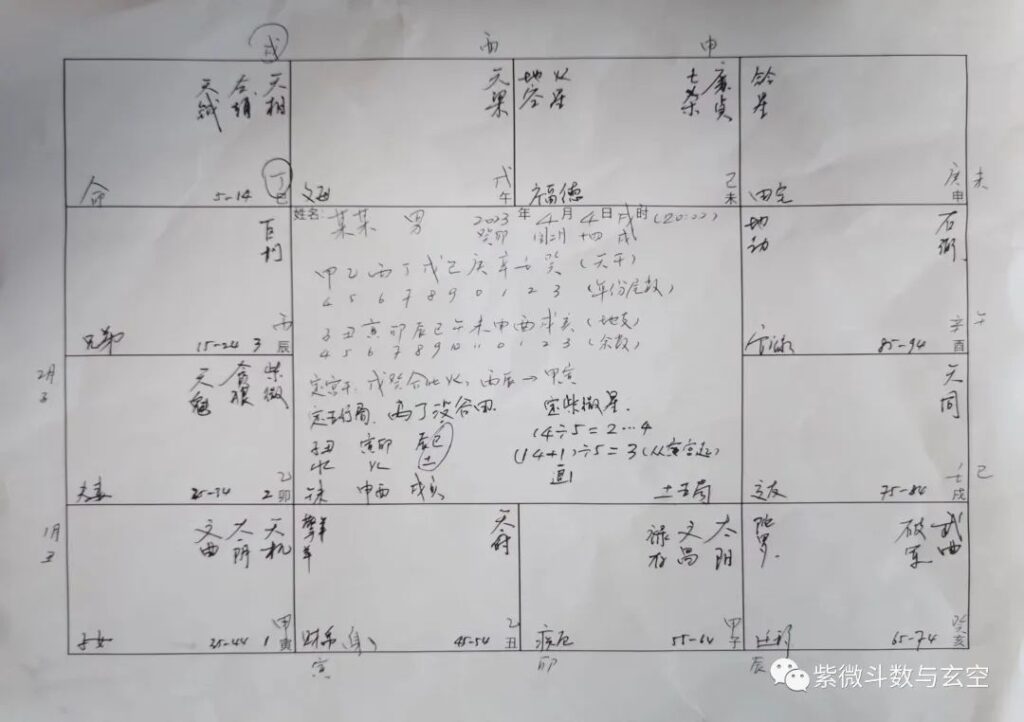 戌 酉 申
天相 左辅 天钺
命 5-14 丁巳
天梁
父母 戊午
廉贞 七杀 火星 地空
福德 己未
铃星
田宅 庚申 未
巨门
兄弟 15-24 3 丙辰
姓名: 某某 男 2023年4月4日戌时(20:00)
癸卯 闰二月 十四 戌
甲乙丙丁戊己庚辛壬癸(天干)
4 5 6 7 8 9 0 1 2 3 (年份尾数)
子丑寅卯辰巳午未申酉戌亥(地支)
4 5 6 7 8 9 10 11 0 1 2 3 (余数)
定宫干: 戊癸合化火, 丙辰→甲寅
定五行局: 定紫微星.
14÷5=2…4
(14+1)÷5=3(从寅宫起)
子丑 寅卯 辰巳
水 火 土
午未 申酉 戌亥
土五局
右弼
地劫
85-94 辛酉 午
2月
紫微 贪狼 天魁
夫妻 25-34 2 乙卯
天同
交友 75-84 壬戌 巳
1月
丑
天机 太阴 文曲
子女 35-44 1 甲寅
天府
擎羊
财帛(身) 45-54 乙丑
寅
太阳 文昌 禄存
疾厄 55-64 甲子
卯
武曲 破军
陀罗
迁移 65-74 癸亥
辰
紫微斗数与玄空